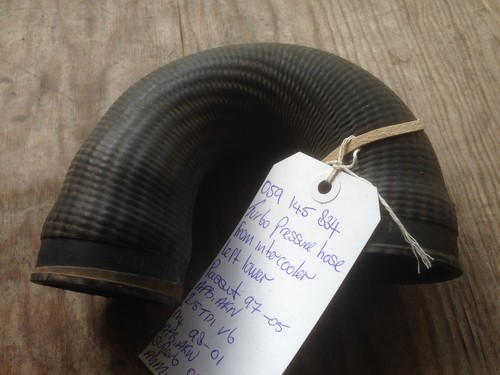 059 145 834
Turbo Pressure hose
from intercooler
left lower
Passat 97-05
AFB.AKN
2.5TDI V6
98-01
AFB.AKN